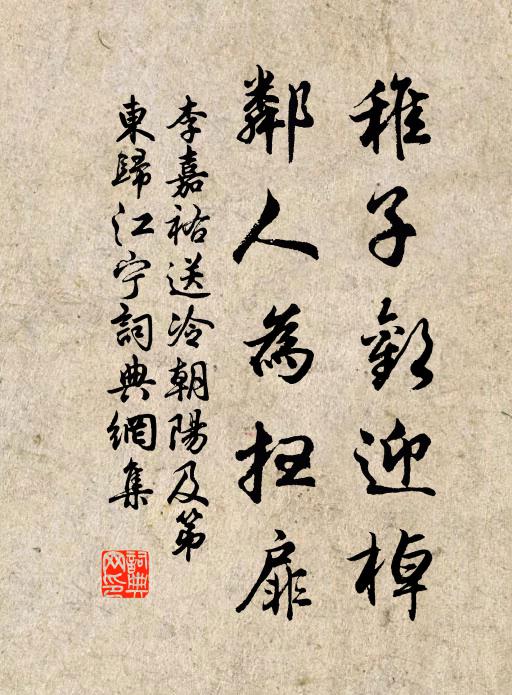 稚子歡迎棹
鄰人為掃扉
李嘉祐送冷朝陽及第
東歸江寧詞典網集
詞典網印